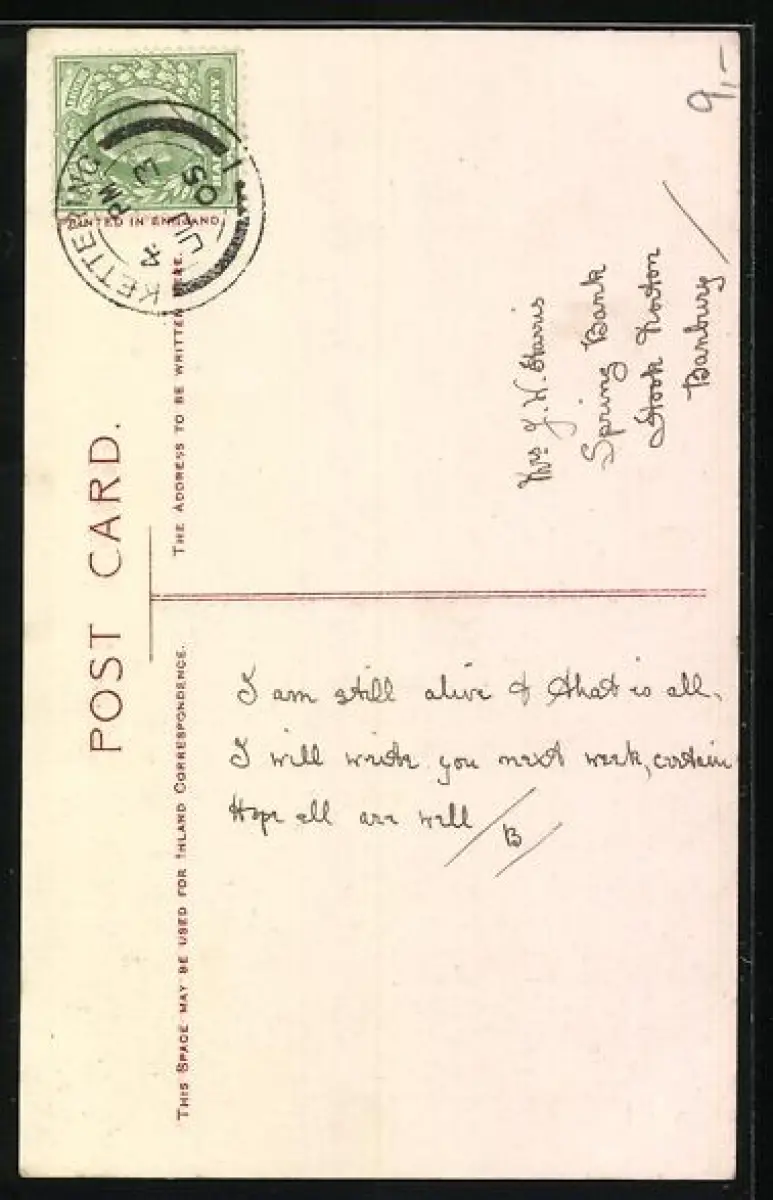 POST CARD.
THIS SPACE MAY BE USED FOR INLAND CORRESPONDENCE.
THE ADDRESS TO BE WRITTEN HERE.
PRINTED IN ENGLAND
HALFPENNY
KETTERING
PM
4
JU 3
05
I am still alive & that is all.
I will write you next week, certain
Hope all are well
B
Mrs J. W. Harris
Spring Bank
Hook Norton
Banbury
9,-